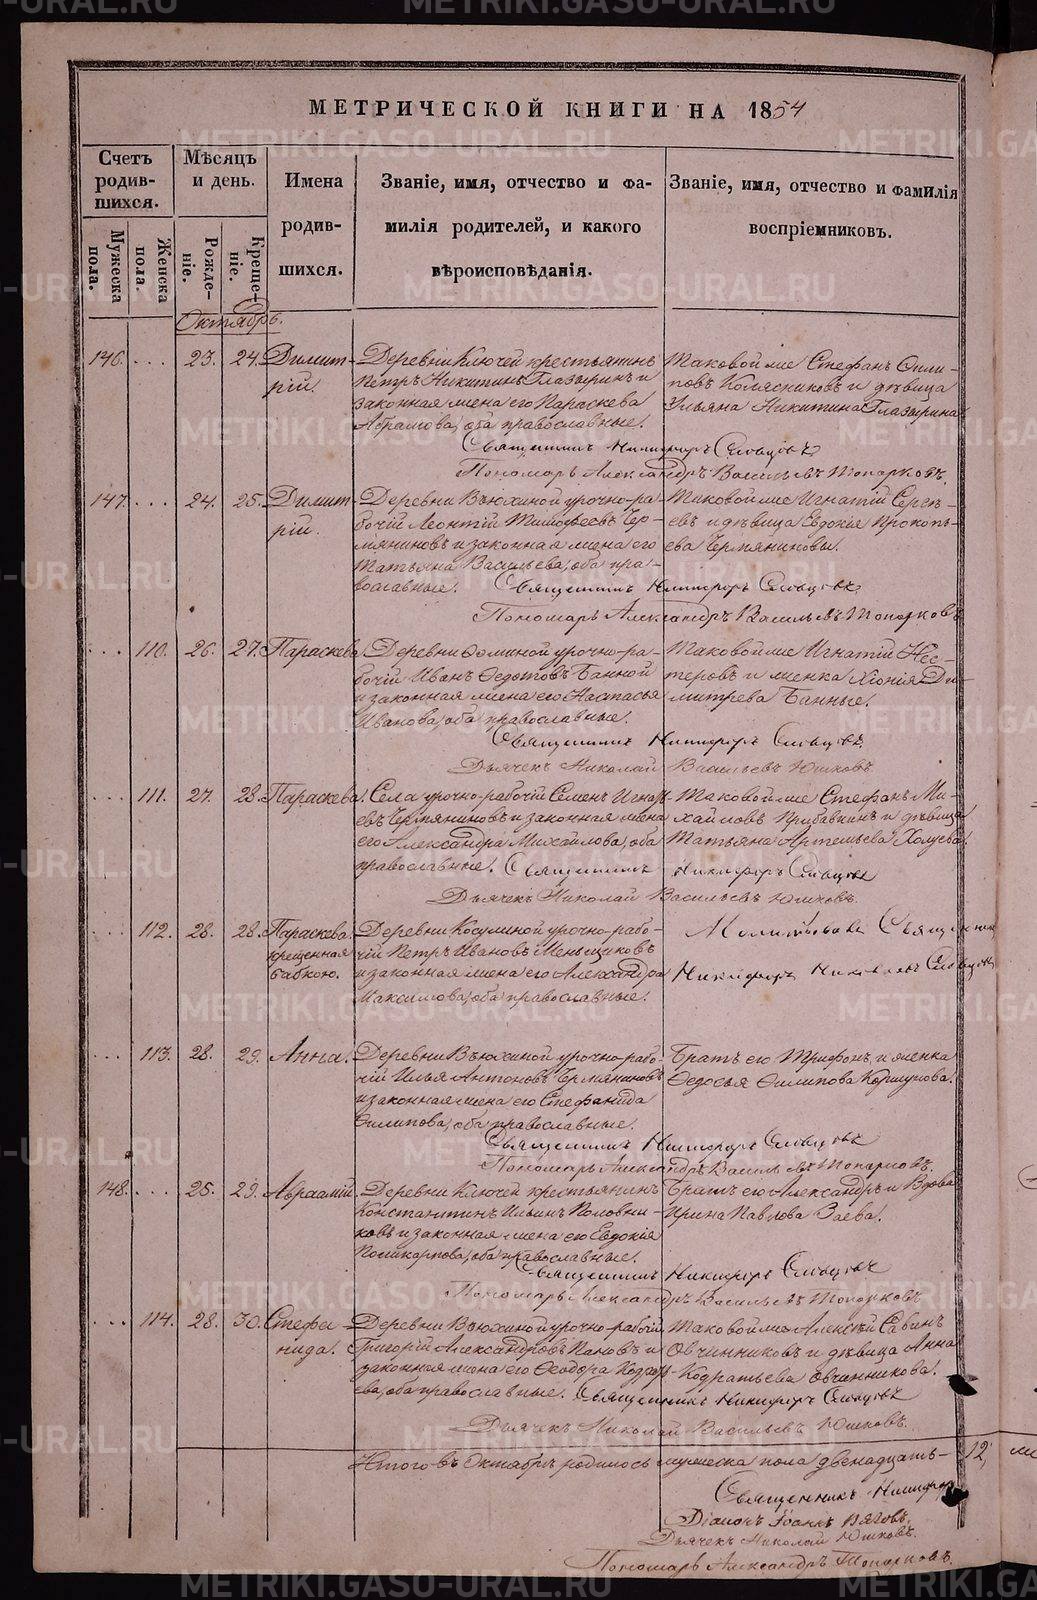 МЕТРИЧЕСКОЙ КНИГИ НА 1854
Счетъ родив-шихся.
Мужеска пола.
Женска пола.
Мѣсяцъ и день.
Рожде-ніе.
Креще-ніе.
Имена родив-шихся.
Званіе, имя, отчество и фа-
милія родителей, и какого
вѣроисповѣданія.
Званіе, имя, отчество и фамилія
воспріемниковъ.
Октябрь.
146. ... 23. 24. Димит-
рій.
Деревни Ключей крестьянинъ
Петръ Никитинъ Глазыринъ и
законная жена его Параскева
Абрамова, оба православные.
Таковой же Стефанъ Фили-
повъ Колясниковъ и дѣвица
Ульяна Никитина Глазырина.
Священникъ Никифоръ Словцовъ
Пономарь Александръ Васильевъ Топорковъ.
147. ... 24. 25. Димит-
рій.
Деревни Вьюхиной урочно-ра-
бочій Леонтій Тимофеевъ Чер-
мяниновъ и законная жена его
Татьяна Васильева, оба пра-
вославные.
Таковой же Игнатій Серге-
евъ и дѣвица Евдокія Прокопь-
ева Чермяниновы.
Священникъ Никифоръ Словцовъ
Пономарь Александръ Васильевъ Топорковъ
... 110. 26. 27. Параскева
Деревни Фоминой урочно-ра-
бочій Иванъ Федотовъ Банной
и законная жена его Настасья
Иванова, оба православные.
Таковой же Игнатій Нес-
теровъ и женка Хіонія Ди-
митрева Банные.
Священникъ Никифоръ Словцовъ
Дьячекъ Николай Васильевъ Юшковъ
... 111. 27. 28. Параскева.
Села урочно-рабочій Семенъ Игнать-
евъ Чермяниновъ и законная жена
его Александра Михайлова, оба
православные.
Таковой же Стефанъ Ми-
хайловъ Прибавкинъ и дѣвица
Татьяна Артемьева Холуева.
Священникъ Никифоръ Словцовъ
Дьячекъ Николай Васильевъ Юшковъ.
... 112. 28. 28. Параскева
крещенная
бабкою.
Деревни Косулиной урочно-рабо-
чій Петръ Ивановъ Меньщиков
и законная жена его Александра
Максимова, оба православные.
Молитвовалъ Священникъ
Никифоръ Словцовъ
... 113. 28. 29. Анна.
Деревни Вьюхиной урочно-рабо-
чій Илья Антоновъ Чермяниновъ
и законная жена его Стефанида
Филипова, оба православные.
Братъ его Трифонъ, и женка
Федосья Филипова Коршунова.
Священникъ Никифоръ Словцовъ
Пономарь Александръ Васильевъ Топорковъ.
148. ... 25. 29. Авраамій.
Деревни Ключей крестьянинъ
Константинъ Ильинъ Половни-
ковъ и законная жена его Евдокія
Поликарпова, оба православные.
Братъ его Александръ и Вдова
Ирина Павлова Заева.
Священникъ Никифоръ Словцовъ
Пономарь Александръ Васильевъ Топорковъ
... 114. 28. 30. Стефа-
нида.
Деревни Вьюхиной урочно-рабочій
Григорій Александровъ Пановъ и
законная жена его Феодора
ева, оба православные.
Таковой же Алексѣй Савинъ
Овчинниковъ и дѣвица Анна
Кодратьева Овчинникова.
Священникъ Никифоръ Словцовъ
Дьячекъ Николай Васильевъ Юшковъ.
Итого въ Октябрѣ родилось мужеска пола двенадцать- 12,
Священникъ Никифоръ
Діаконъ Іоаннъ
Дьячекъ Николай Юшковъ.
Пономарь Александръ Топорковъ.
METRIKI.GASO-URAL.RU